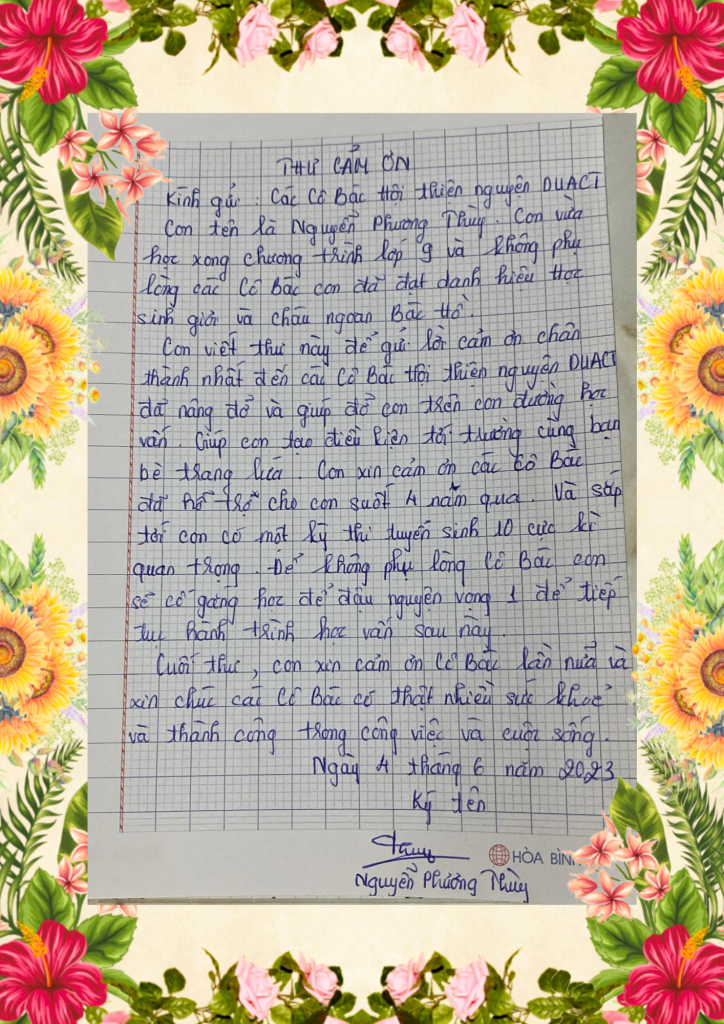 THƯ CẢM ƠN
Kính gửi : Các Cô Bác Hội thiện nguyện DUACT
Con tên là Nguyễn Phương Thùy. Con vừa
học xong chương trình lớp 9 và không phụ
lòng các Cô Bác con đã đạt danh hiệu Học
sinh giỏi và cháu ngoan Bác Hồ.
Con viết thư này để gửi lời cảm ơn chân
thành nhất đến các Cô Bác Hội thiện nguyện DUACT
đã nâng đỡ và giúp đỡ con trên con đường học
vấn. Giúp con tạo điều kiện tới trường cùng bạn
bè trang lứa. Con xin cảm ơn các Cô Bác
đã hỗ trợ cho con suốt 4 năm qua. Và sắp
tới con có một kỳ thi tuyển sinh 10 cực kì
quan trọng. Để không phụ lòng Cô Bác con
sẽ cố gắng học để đậu nguyện vọng 1 để tiếp
tục hành trình học vấn sau này.
Cuối thư, con xin cảm ơn Cô Bác lần nữa và
xin chúc các Cô Bác có thật nhiều sức khoẻ
và thành công trong công việc và cuộc sống.
Ngày 4 tháng 6 năm 2023
Ký tên
Thùy
HÒA BÌN
Nguyễn Phương Thùy